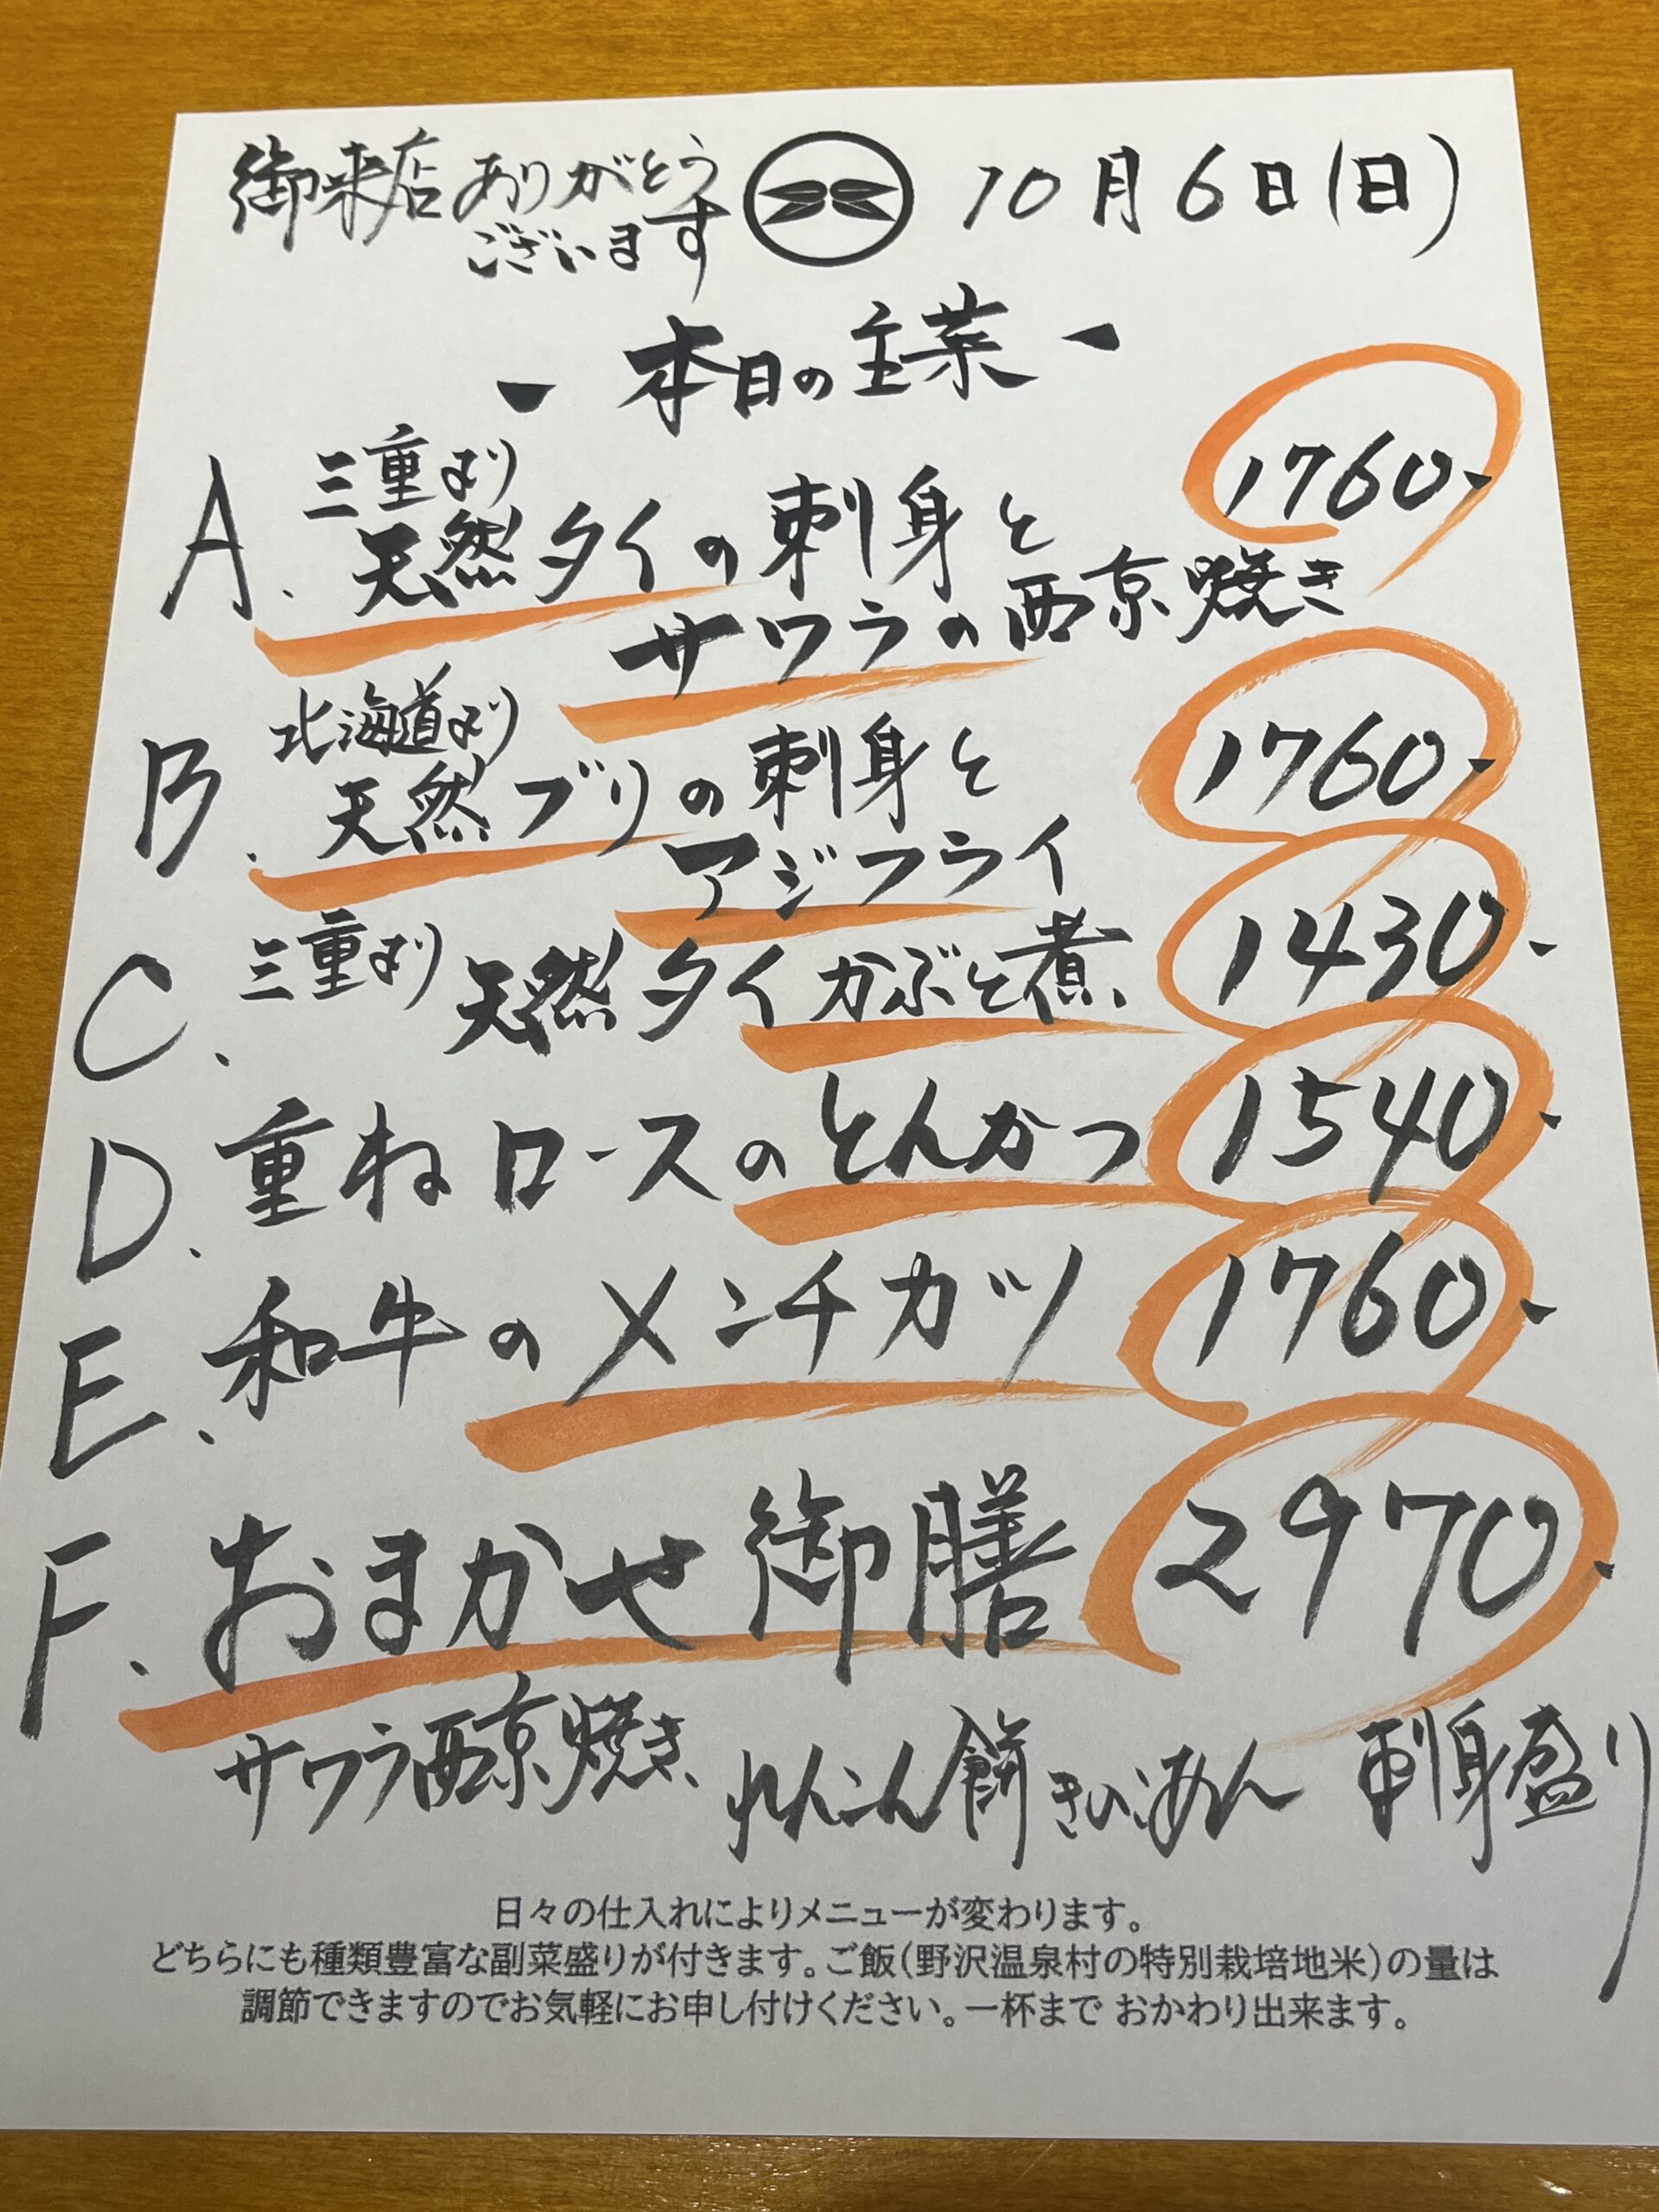 御来店ありがとう
ございます
10月6日(日)
- 本日の主菜 -
A. 三重より
天然タイの刺身と
サワラの西京焼き
1760-
B. 北海道より
天然ブリの刺身と
アジフライ
1760-
C. 三重より 天然タイかぶと煮 1430-
D. 重ねロースのとんかつ 1540-
E. 和牛のメンチカツ 1760-
F. おまかせ御膳 2970-
サワラ西京焼き れんこん餅 刺身盛り
日々の仕入れによりメニューが変わります。
どちらにも種類豊富な副菜盛りが付きます。ご飯(野沢温泉村の特別栽培地米)の量は
調節できますのでお気軽にお申し付けください。一杯まで おかわり出来ます。